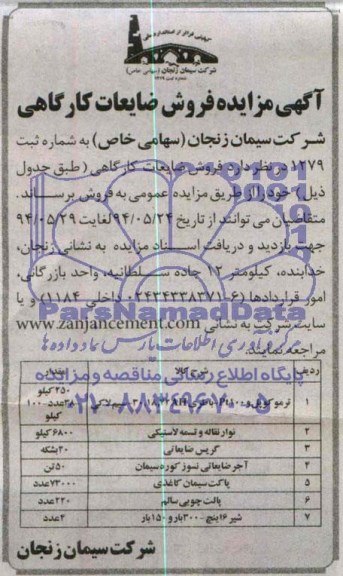 کیفیتی فراتر از استاندارد ملی
شرکت سیمان زنجان (سهامی خاص)
شماره ثبت ۱۲۷۹
آگهی مزایده فروش ضایعات کارگاهی
شرکت سیمان زنجان (سهامی خاص) به شماره ثبت
۱۲۷۹ در نظر دارد فروش ضایعات کارگاهی (طبق جدول
ذیل) خود را از طریق مزایده عمومی به فروش برساند.
متقاضیان می توانند از تاریخ ۹۴/۰۵/۲۴ لغایت ۹۴/۰۵/۲۹
جهت بازدید و دریافت اسناد مزایده به نشانی زنجان،
خدابنده، کیلومتر ۱۲ جاده سلطانیه، واحد بازرگانی،
امور قراردادها (۶-۰۲۴۳۴۳۳۸۳۷۱ داخلی ۱۱۸۴) و یا
سایت شرکت به نشانی www.zanjancement.com
مراجعه نمایند.
ParsNamadData
مرکز فرآوری اطلاعات پارس نماد داده ها
پایگاه اطلاع رسانی مناقصه و مزایده
۰۲۱-۸۸۳۴۹۶۷۰-۵
ردیف شرح کالا مقدار
۱ ترموکوپل ۲۵۰ کیلو ۱۰۰ کیلو
۲ نوار نقاله و تسمه لاستیکی ۶۸۰۰ کیلو
۳ گریس ضایعاتی ۲۰ بشکه
۴ آجر ضایعاتی نسوز کوره سیمان ۵۰ تن
۵ پاکت سیمان کاغذی ۷۳۰۰۰ عدد
۶ پالت چوبی سالم ۲۲۰ عدد
۷ شیر ۱۶ اینچ ۳۰۰ بار و ۱۵۰ بار ۴ عدد
شرکت سیمان زنجان